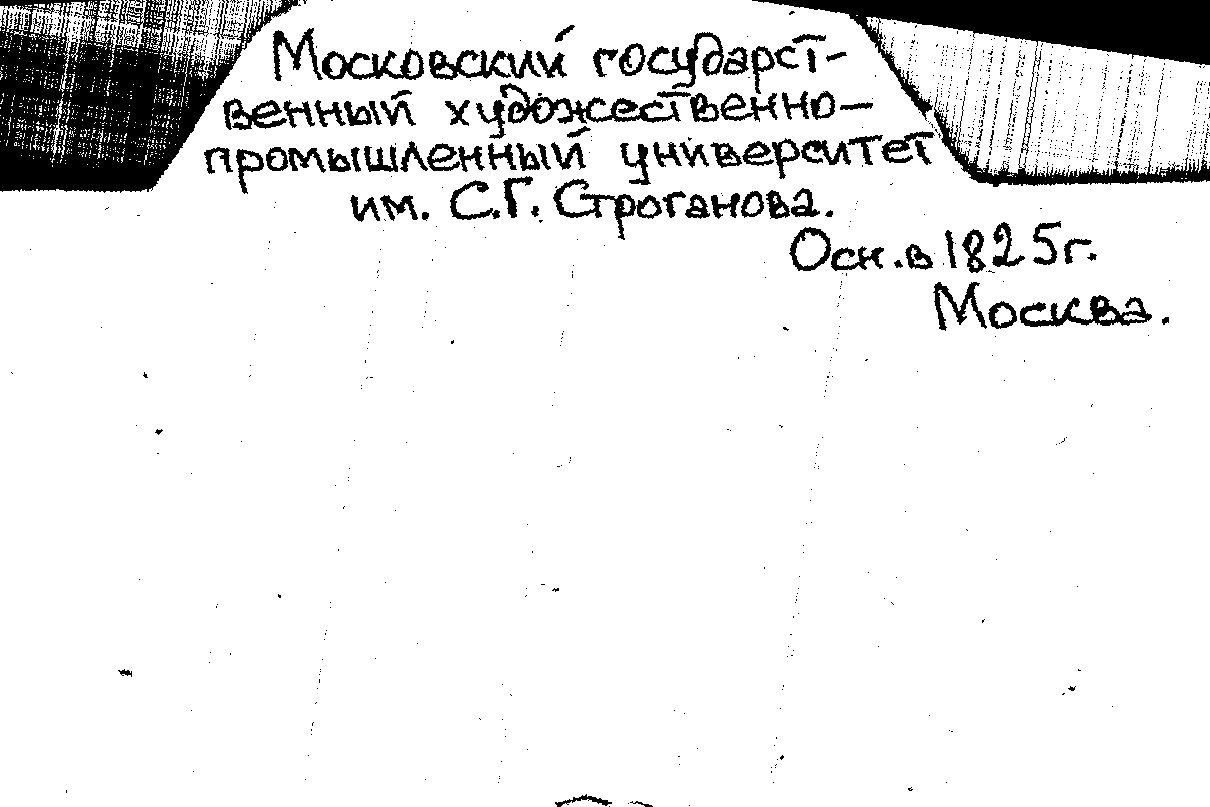 Московский государст-
венный художественно-
промышленный университет
им. С.Г. Строганова.
Осн. в 1825г.
Москва.